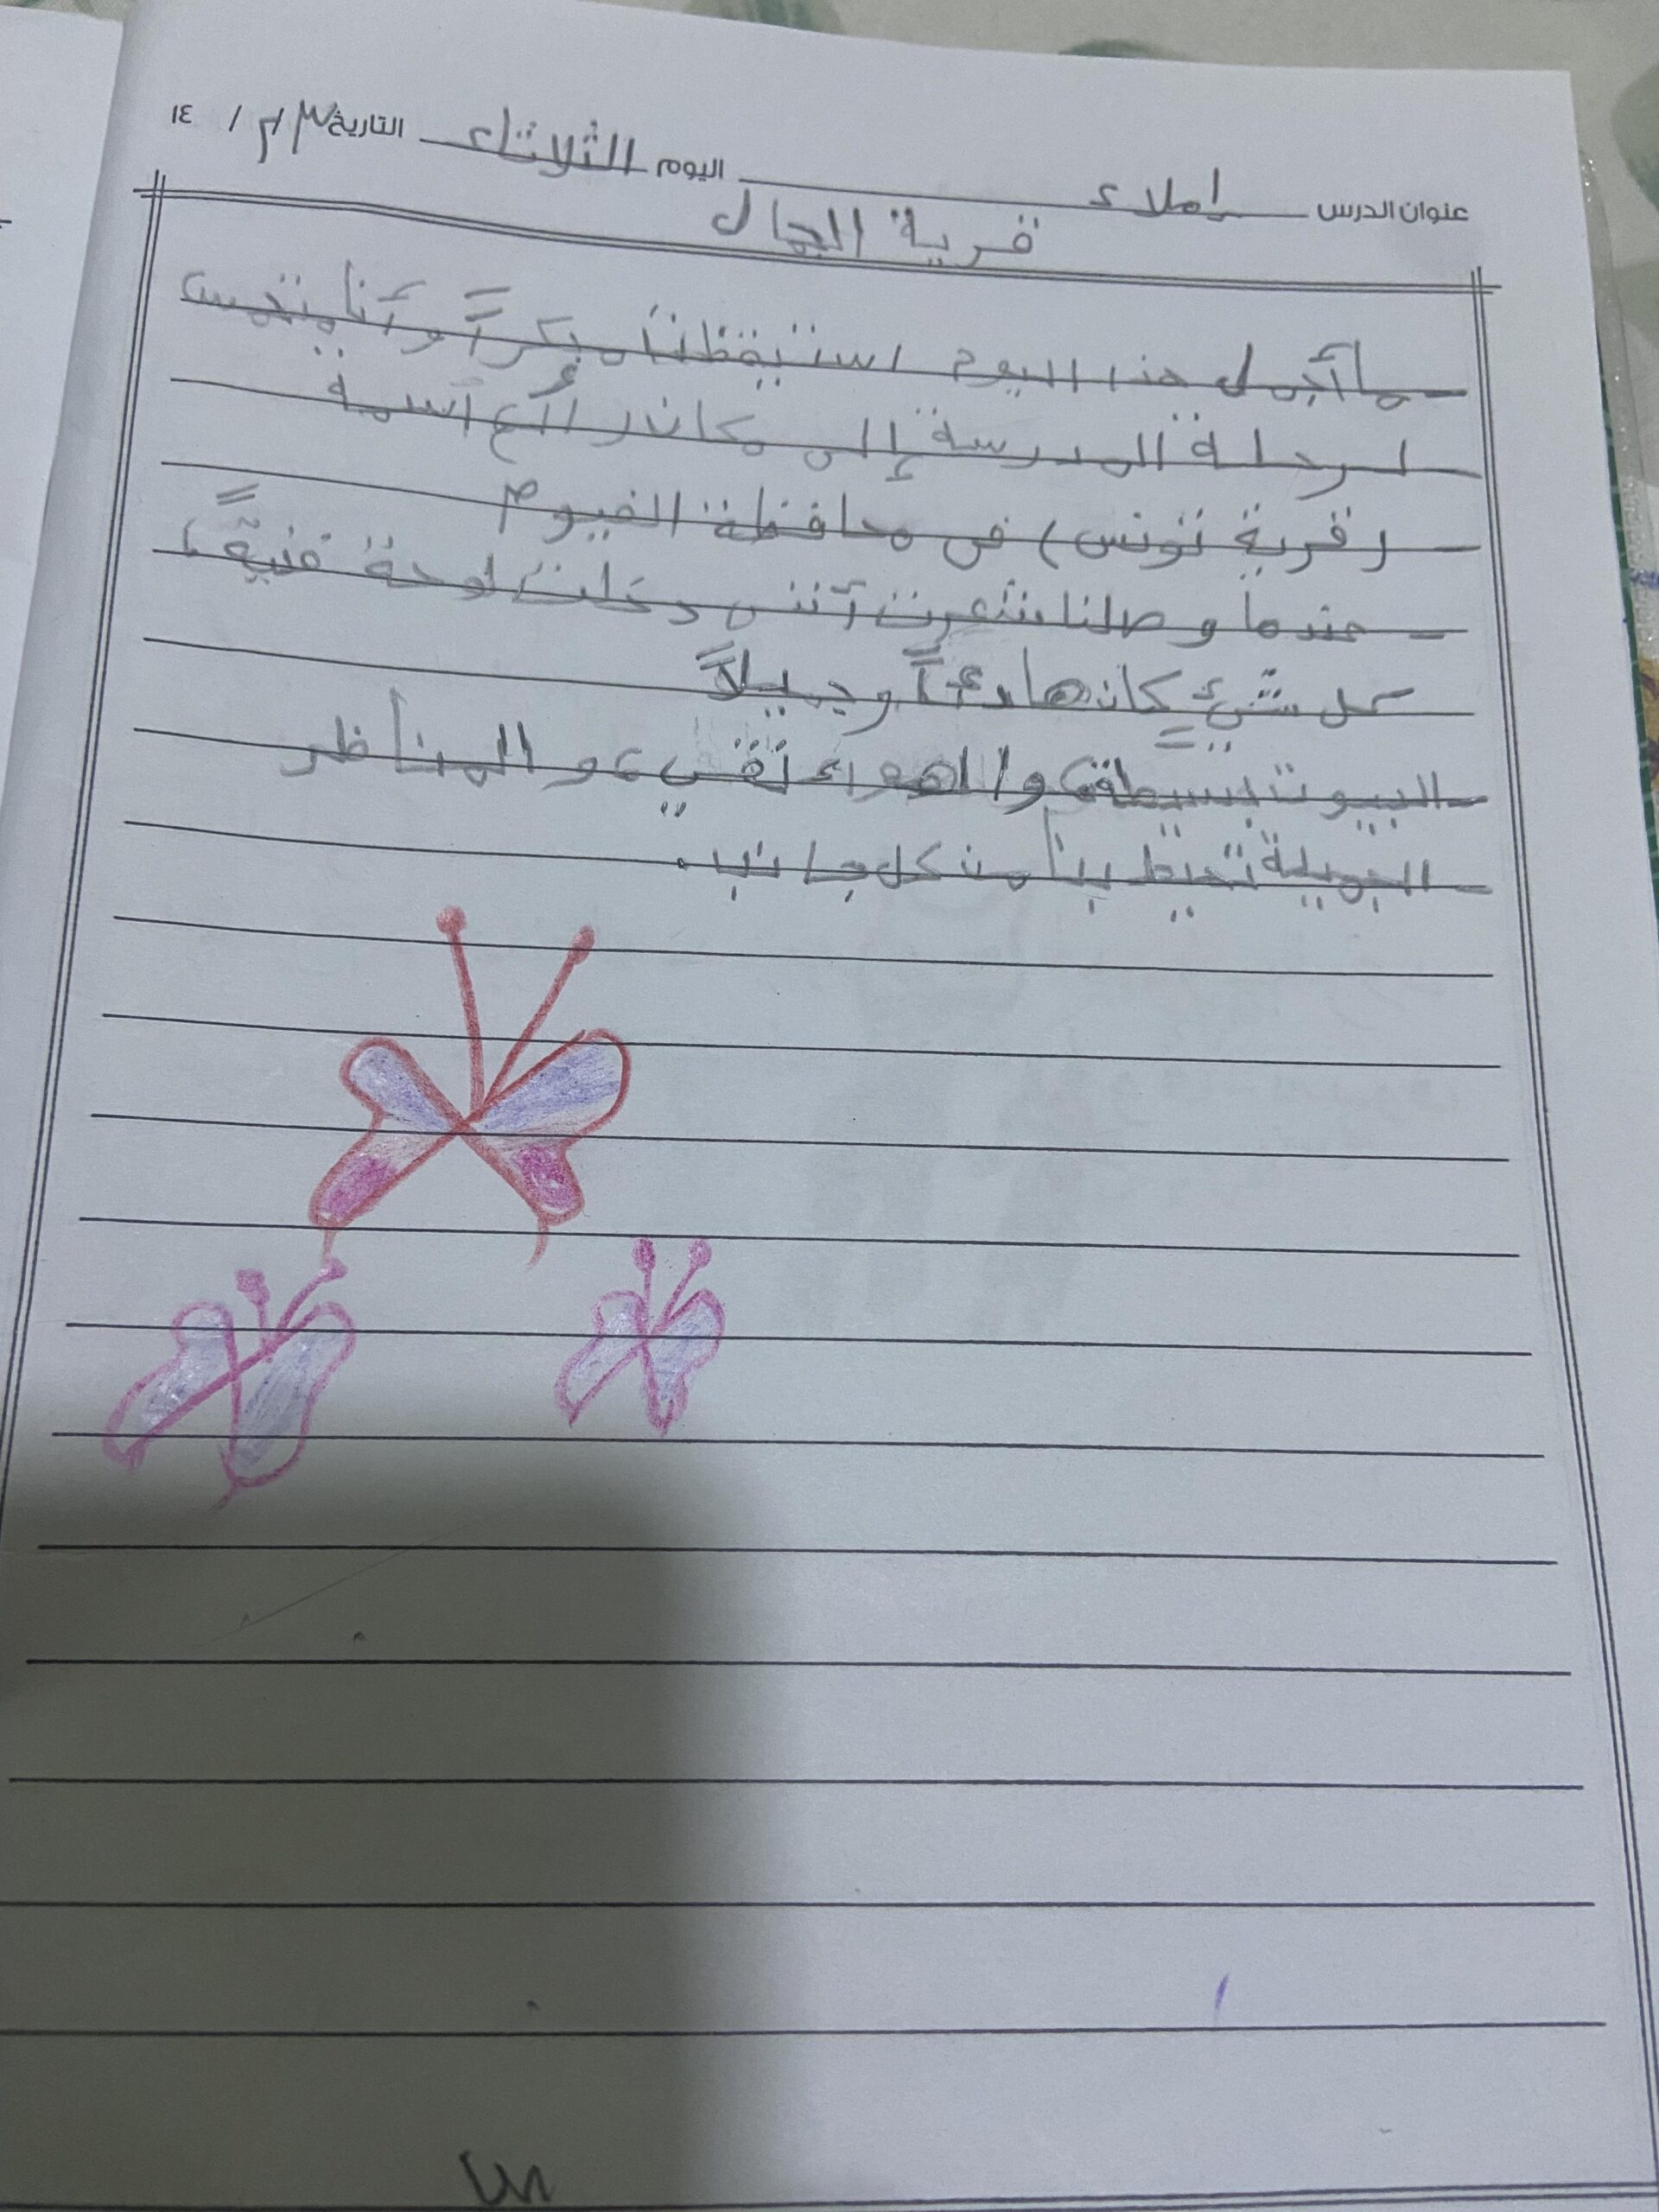 عنوان الدرس إملاء اليوم الثلاثاء التاريخ ٣/٢ / ١٤
قرية الجمال
ما أجمل هذا اليوم استيقظنا مبكراً وأنا متحمسة
لرحلة المدرسة إلى مكان رائع اسمه
(قرية تونس) في محافظة الفيوم
عندما وصلنا شعرت أنني دخلت لوحة فنيةً،
كل شيءٍ كان هادئاً وجميلاً
البيوت بسيطة، والهواء نقي، والمناظر
الجميلة تحيط بنا من كل جانب.